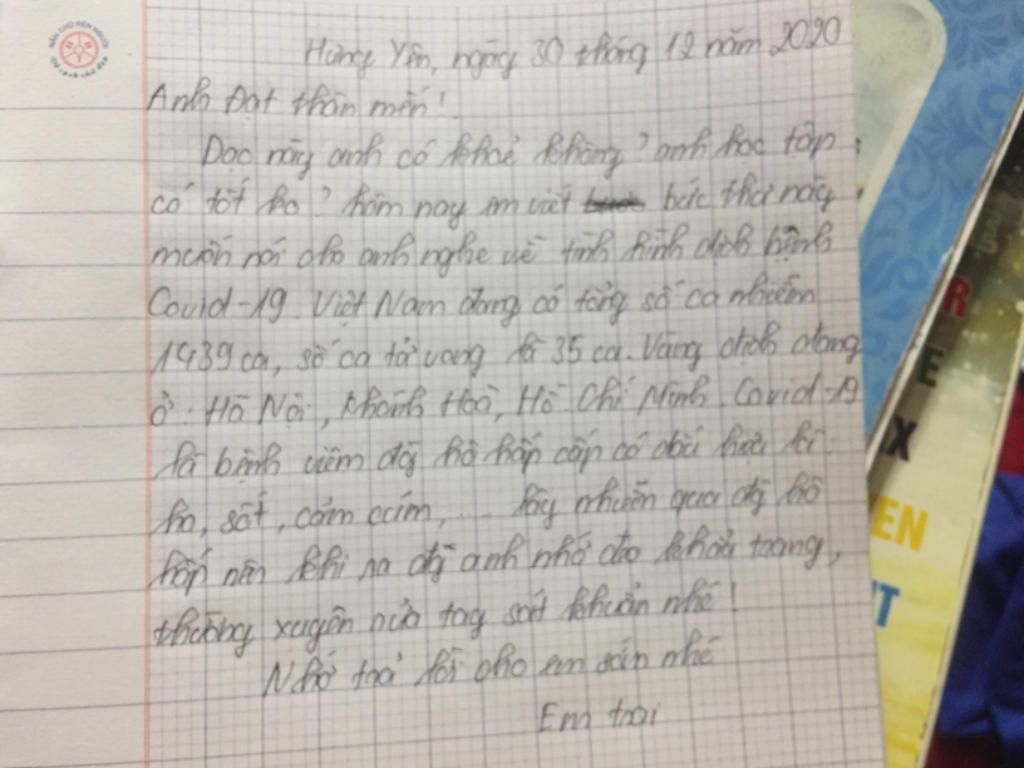 NẮN CHỮ RÈN NGƯỜI
Hưng Yên, ngày 30 tháng 12 năm 2020
Anh Đạt thân mến!
Dạo này anh có khoẻ không? anh học tập
có tốt ko? hôm nay em viết bức thư này
muốn nói cho anh nghe về tình hình dịch bệnh
Covid-19. Việt Nam đang có tổng số ca nhiễm
1439 ca, số ca tử vong là 35 ca. Vùng dịch đang
ở: Hà Nội, Khánh Hoà, Hồ Chí Minh. Covid-19
là bệnh viêm đg hô hấp cấp có dấu hiệu là:
ho, sốt, cảm cúm,... lây nhiễm qua đg hô
hấp nên khi ra đg anh nhớ đeo khẩu trang,
thường xuyên rửa tay sát khuẩn nhé!
Nhớ trả lời cho em sớm nhé
Em trai
R
E
X
EN
T